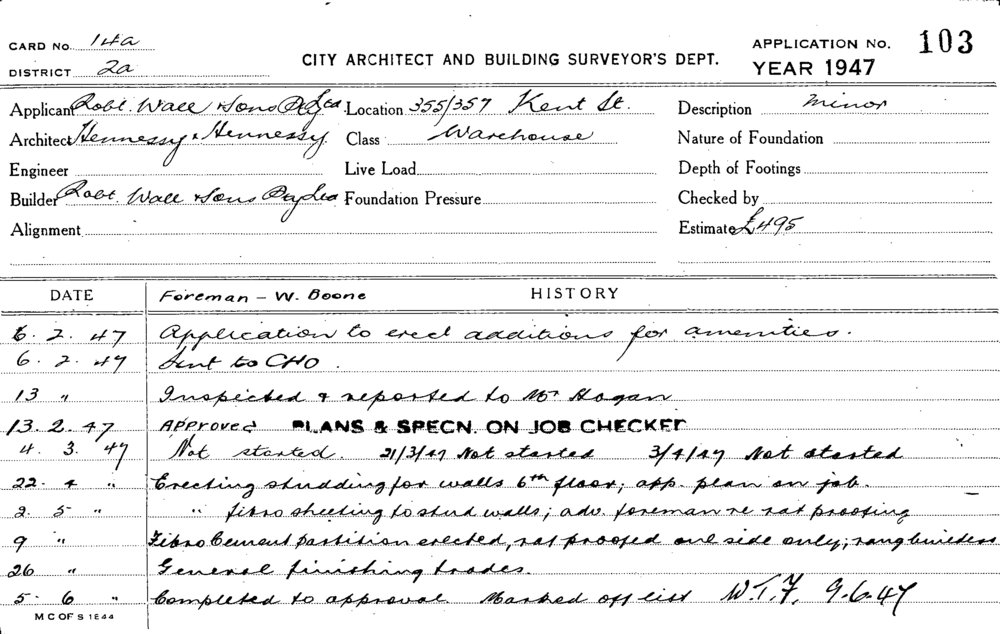 CARD No. 14a
DISTRICT 2a
CITY ARCHITECT AND BUILDING SURVEYOR'S DEPT.
APPLICATION No. 103
YEAR 1947
Applicant Robt. Wall & Sons P/L Ltd Location 355/357 Kent St. Description Minor
Architect Hennessy & Hennessy. Class Warehouse Nature of Foundation
Engineer Live Load Depth of Footings
Builder Robt. Wall & Sons Pty Ltd Foundation Pressure Checked by
Alignment Estimate £495
DATE Foreman - W. Boone HISTORY
6. 2. 47 Application to erect additions for amenities.
6. 2. 47 Sent to CHO.
13 " Inspected & reported to Mr Hogan
13. 2. 47 Approved PLANS & SPECN. ON JOB CHECKED
4. 3. 47 Not started. 21/3/47 Not started 3/4/47 Not started
22. 4 " Erecting studding for walls 6th floor; app. plan on job.
2. 5 " " fibro sheeting to stud walls; adv. foreman re rat proofing
9 " Fibro Cement partition erected, rat proofed one side only; rang builders
26 " General finishing trades.
5. 6 " Completed to approval. Marked off list W.T.F. 9.6.47
M C OF S 1E44